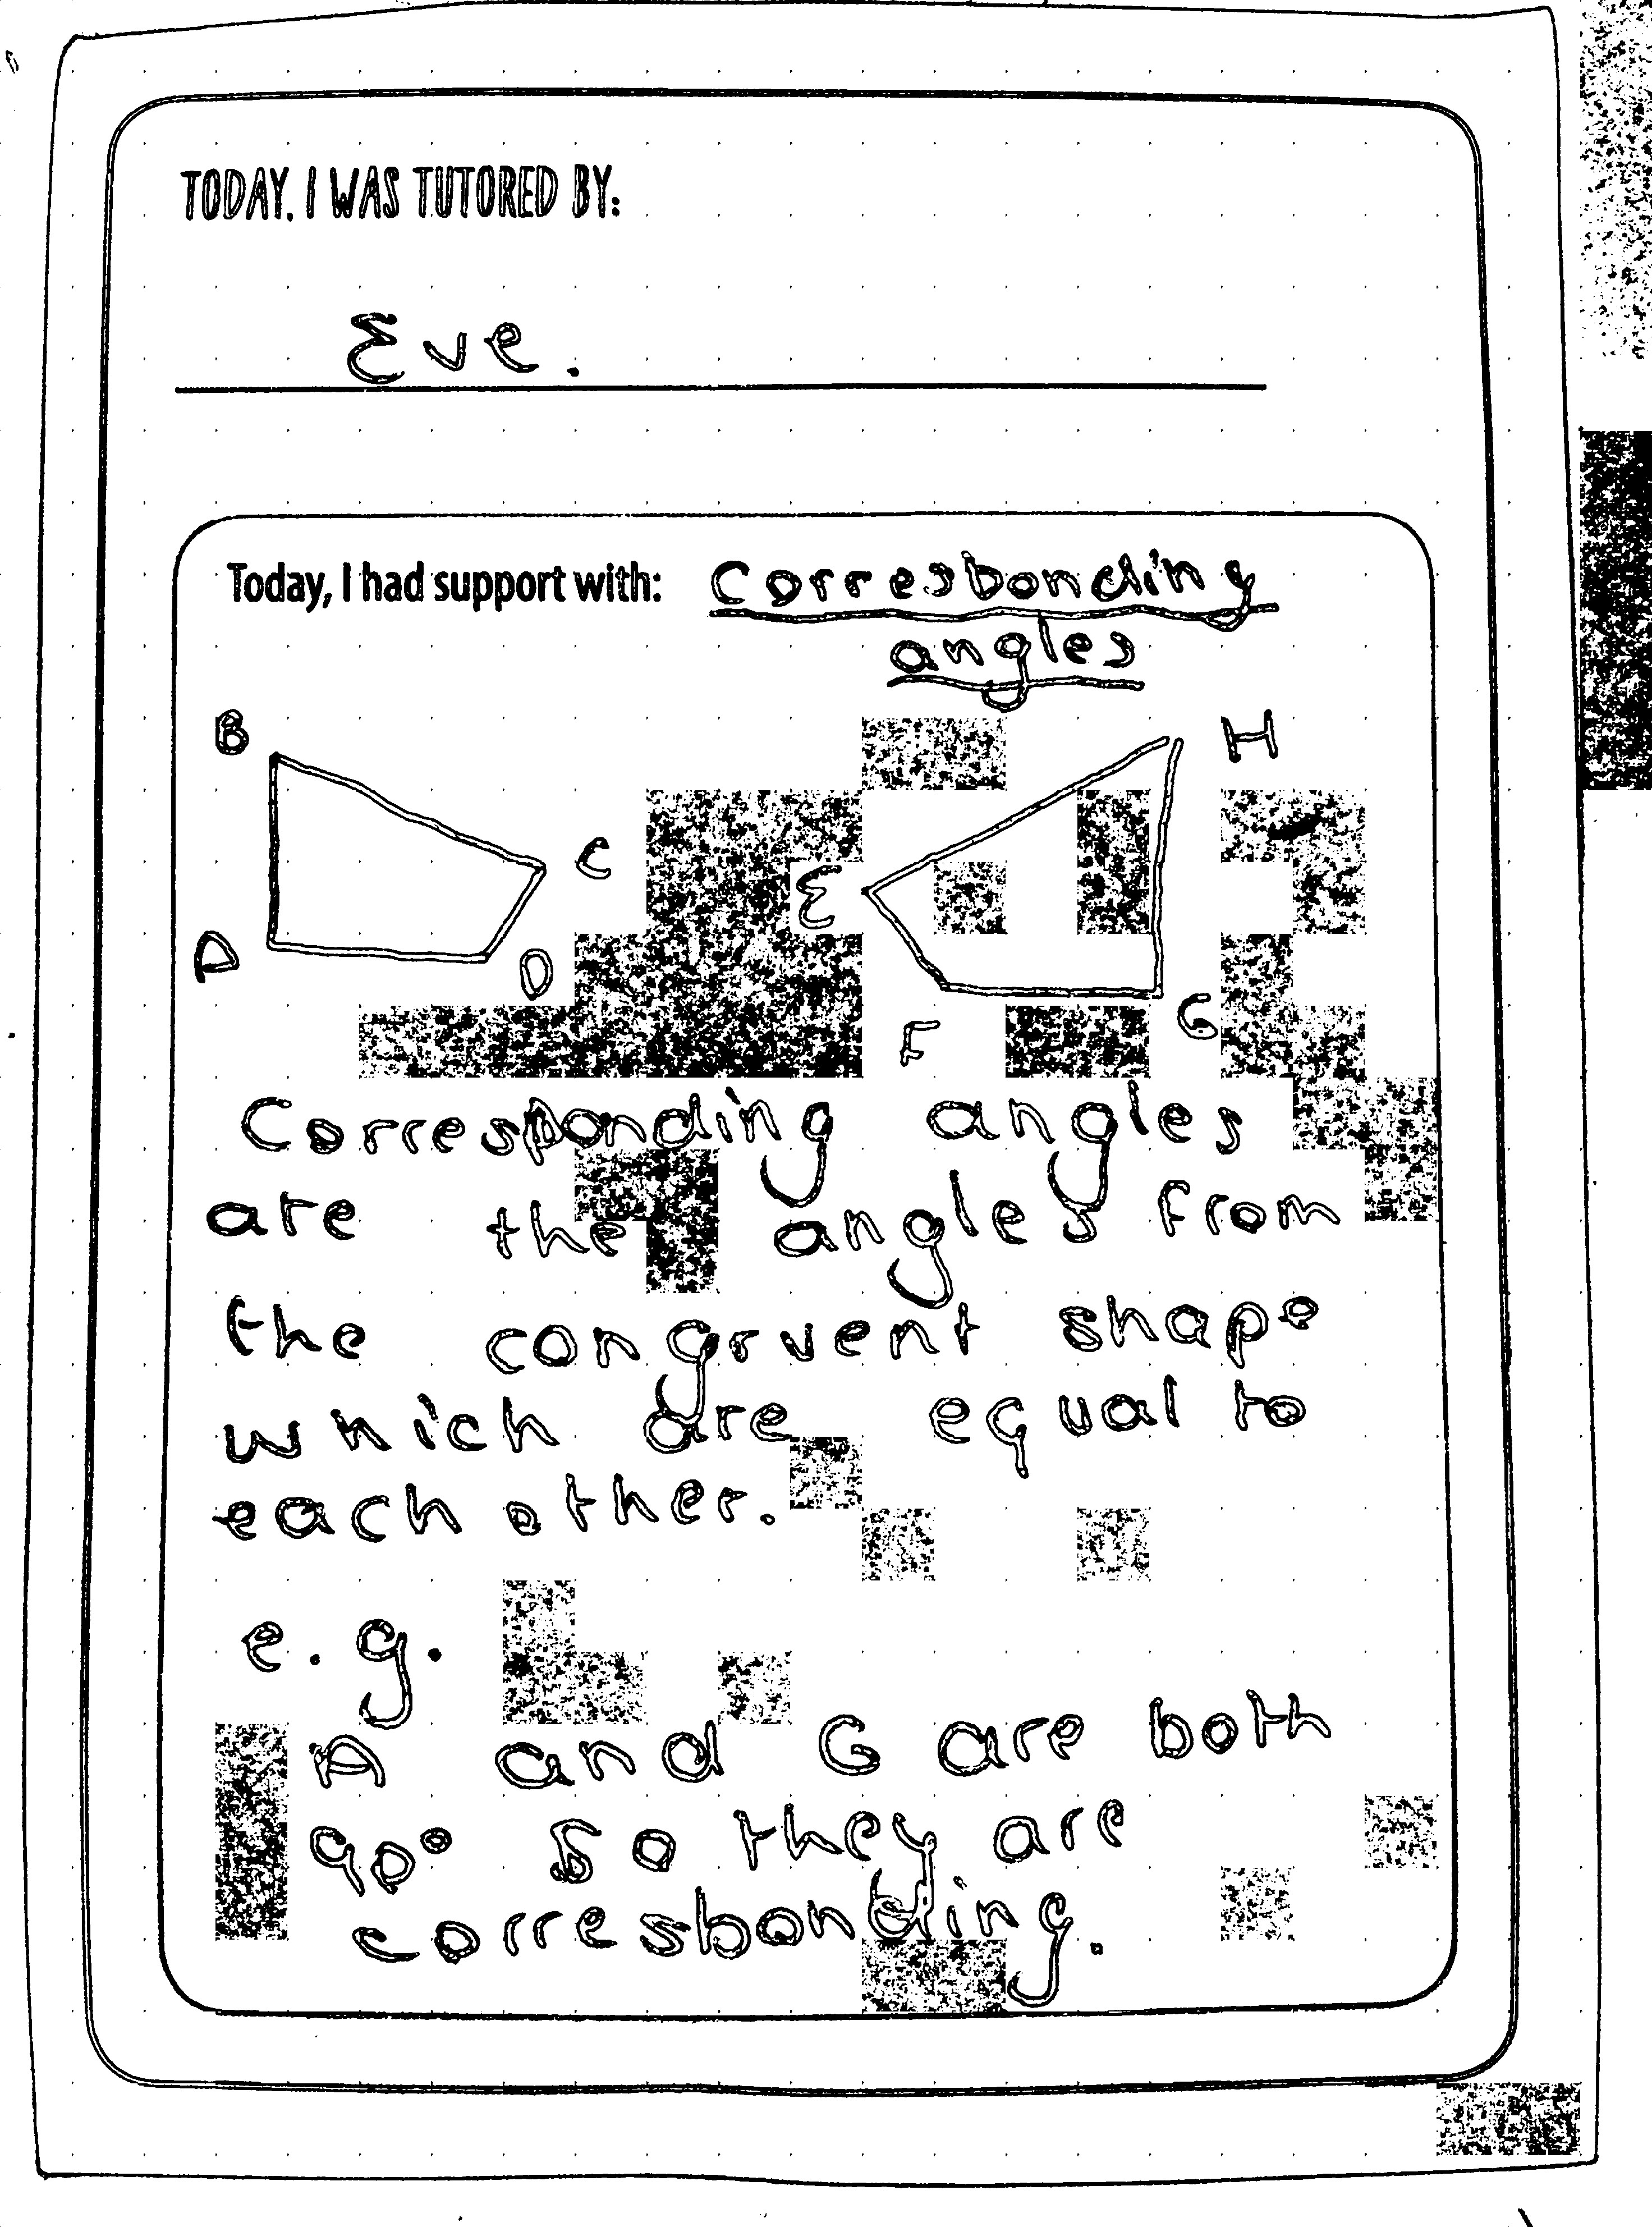 TODAY, I WAS TUTORED BY:
Eve.
Today, I had support with: Corresbonding
angles
B
H
C
E
A
D
G
F
Corresponding angles
are the angles from
the congruent shape
which are equal to
each other.
e.g.
A and G are both
90° so they are
corresbonding.